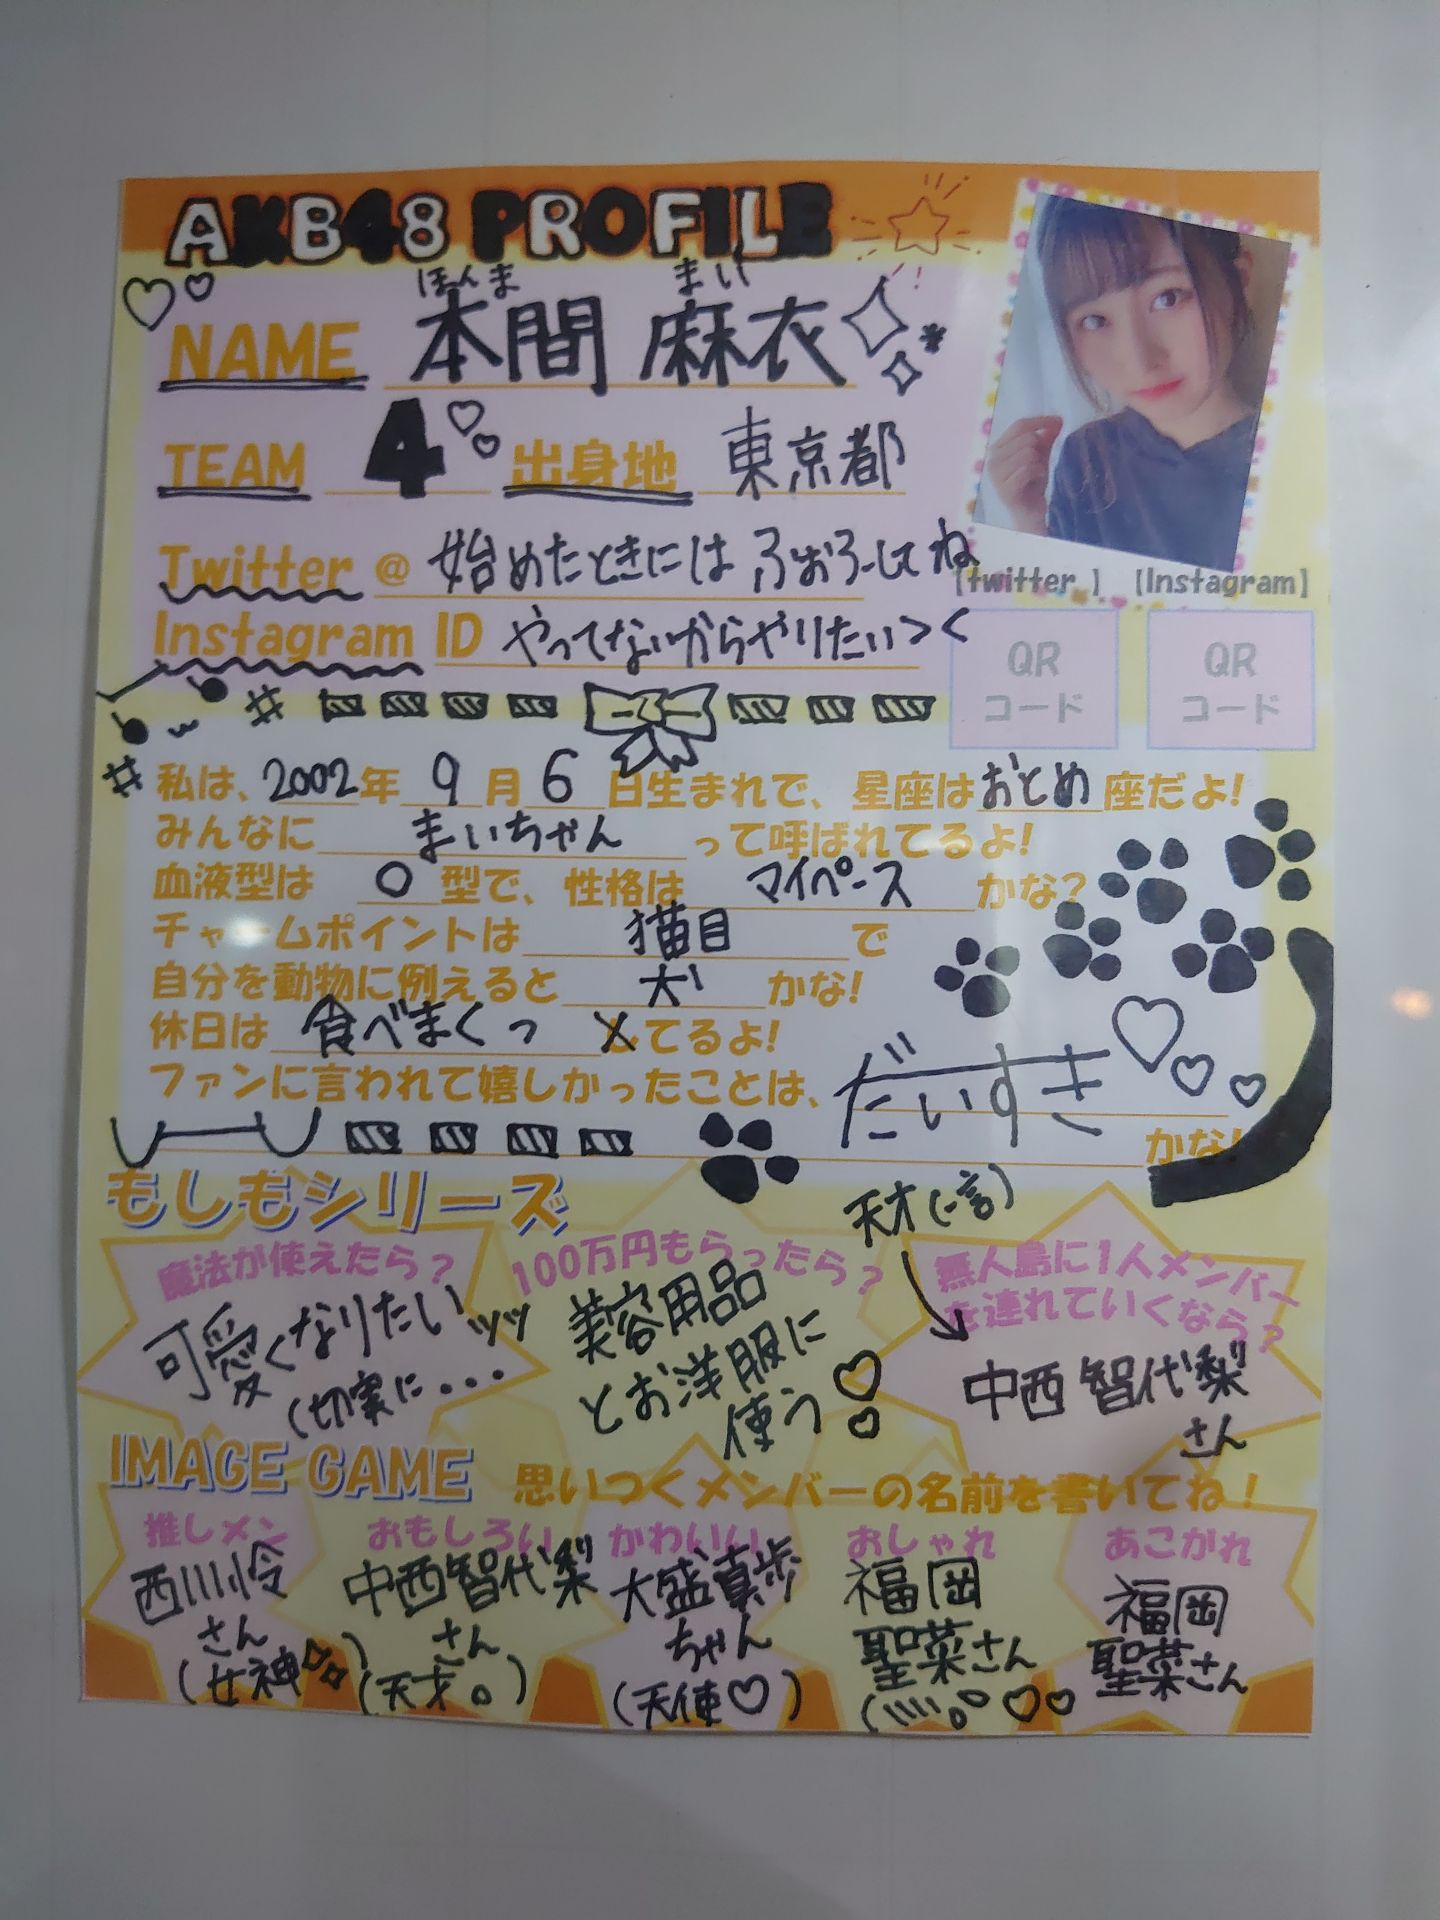 AKB48 PROFILE
ほんま まい
NAME 本間 麻衣
TEAM 4 出身地 東京都
Twitter @ 始めたときには ふぉろーしてね
Instagram ID やってないからやりたい><
【twitter】 【Instagram】
QR コード
QR コード
私は、2002年 9月 6日生まれで、星座はおとめ座だよ!
みんなに まいちゃん って呼ばれてるよ!
血液型は O 型で、性格は マイペース かな?
チャームポイントは 猫目 で
自分を動物に例えると 犬 かな!
休日は 食べまくっ してるよ!
ファンに言われて嬉しかったことは、だいすき
かな!
もしもシリーズ
魔法が使えたら?
可愛くなりたいッッ
(切実に...
100万円もらったら?
美容用品
とお洋服に
使う
天才(一言)
無人島に1人メンバー
を連れていくなら?
中西 智代梨
さん
IMAGE GAME 思いつくメンバーの名前を書いてね!
推しメン
西川怜
さん
(女神)
おもしろい
中西智代梨
さん
(天才。)
かわいい
大盛真歩
ちゃん
(天使♡)
おしゃれ
福岡
聖菜さん
あこがれ
福岡
聖菜さん